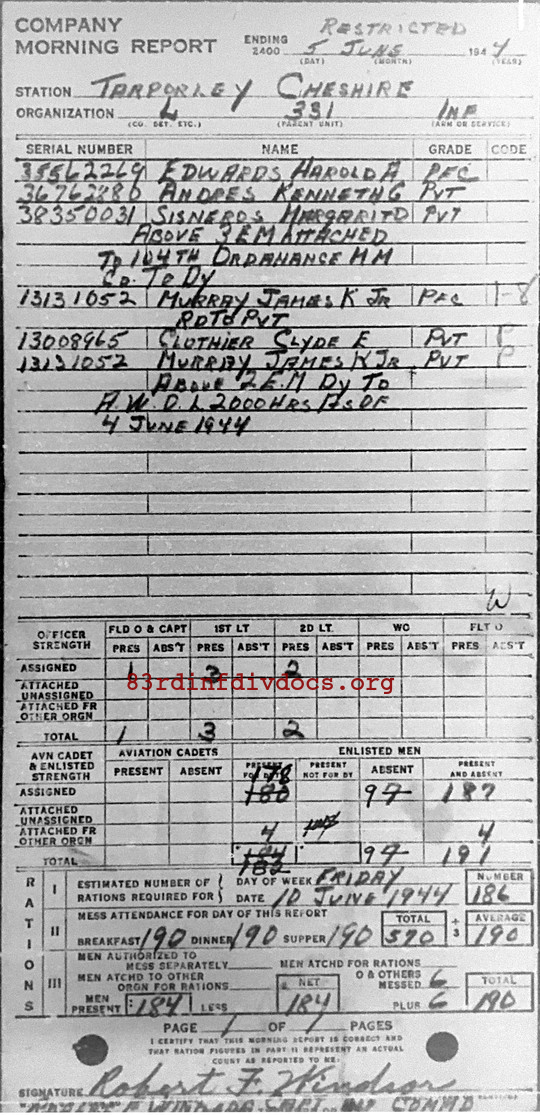 COMPANY
MORNING REPORT
RESTRICTED
ENDING 2400 5 JUNE 1944
(DAY) (MONTH) (YEAR)
STATION TARPORLEY CHESHIRE
ORGANIZATION L 331 INF
(CO. DET. ETC.) (PARENT UNIT) (ARM OR SERVICE)
SERIAL NUMBER NAME GRADE CODE
35562269 EDWARDS HAROLD A PFC
36762880 ANDRES KENNETH G PVT
38350031 SISNEROS MARGARITO PVT
ABOVE 3 EM ATTACHED
TO 104TH ORDANANCE MM
CO. TO DY
13131052 MURRAY JAMES K JR PFC 1-8
RD TO PVT
13008965 CLOTHIER CLYDE E PVT P
13131052 MURRAY JAMES K JR PVT P
ABOVE 2 E.M DY TO
A.W.O.L 2000 HRS AS OF
4 JUNE 1944
W
OFFICER STRENGTH FLD O & CAPT 1ST LT 2D LT. WO FLT O
PRES ABS'T PRES ABS'T PRES ABS'T PRES ABS'T PRES ABS'T
ASSIGNED 1 3 2
83rdinfdivdocs.org
ATTACHED UNASSIGNED
ATTACHED FR OTHER ORGN
TOTAL 1 3 2
AVN CADET & ENLISTED STRENGTH AVIATION CADETS ENLISTED MEN
PRESENT ABSENT PRESENT FOR DY PRESENT NOT FOR DY ABSENT PRESENT AND ABSENT
178
ASSIGNED 180 187
ATTACHED UNASSIGNED
ATTACHED FR OTHER ORGN 4 4
TOTAL 184 191
182
RATIONS
I ESTIMATED NUMBER OF RATIONS REQUIRED FOR DAY OF WEEK FRIDAY NUMBER
DATE 10 JUNE 1944 186
II MESS ATTENDANCE FOR DAY OF THIS REPORT TOTAL ÷ 3 AVERAGE
BREAKFAST 190 DINNER 190 SUPPER 190 570 190
III MEN AUTHORIZED TO MESS SEPARATELY MEN ATCHD FOR RATIONS
MEN ATCHD TO OTHER ORGN FOR RATIONS NET O & OTHERS MESSED 6 TOTAL
MEN PRESENT 184 LESS 184 PLUS 6 190
PAGE 1 OF 1 PAGES
I CERTIFY THAT THIS MORNING REPORT IS CORRECT AND
THAT RATION FIGURES IN PART II REPRESENT AN ACTUAL
COUNT AS REPORTED TO ME.
SIGNATURE Robert F. Windsor
F WINDSOR CAPT INF COMMD